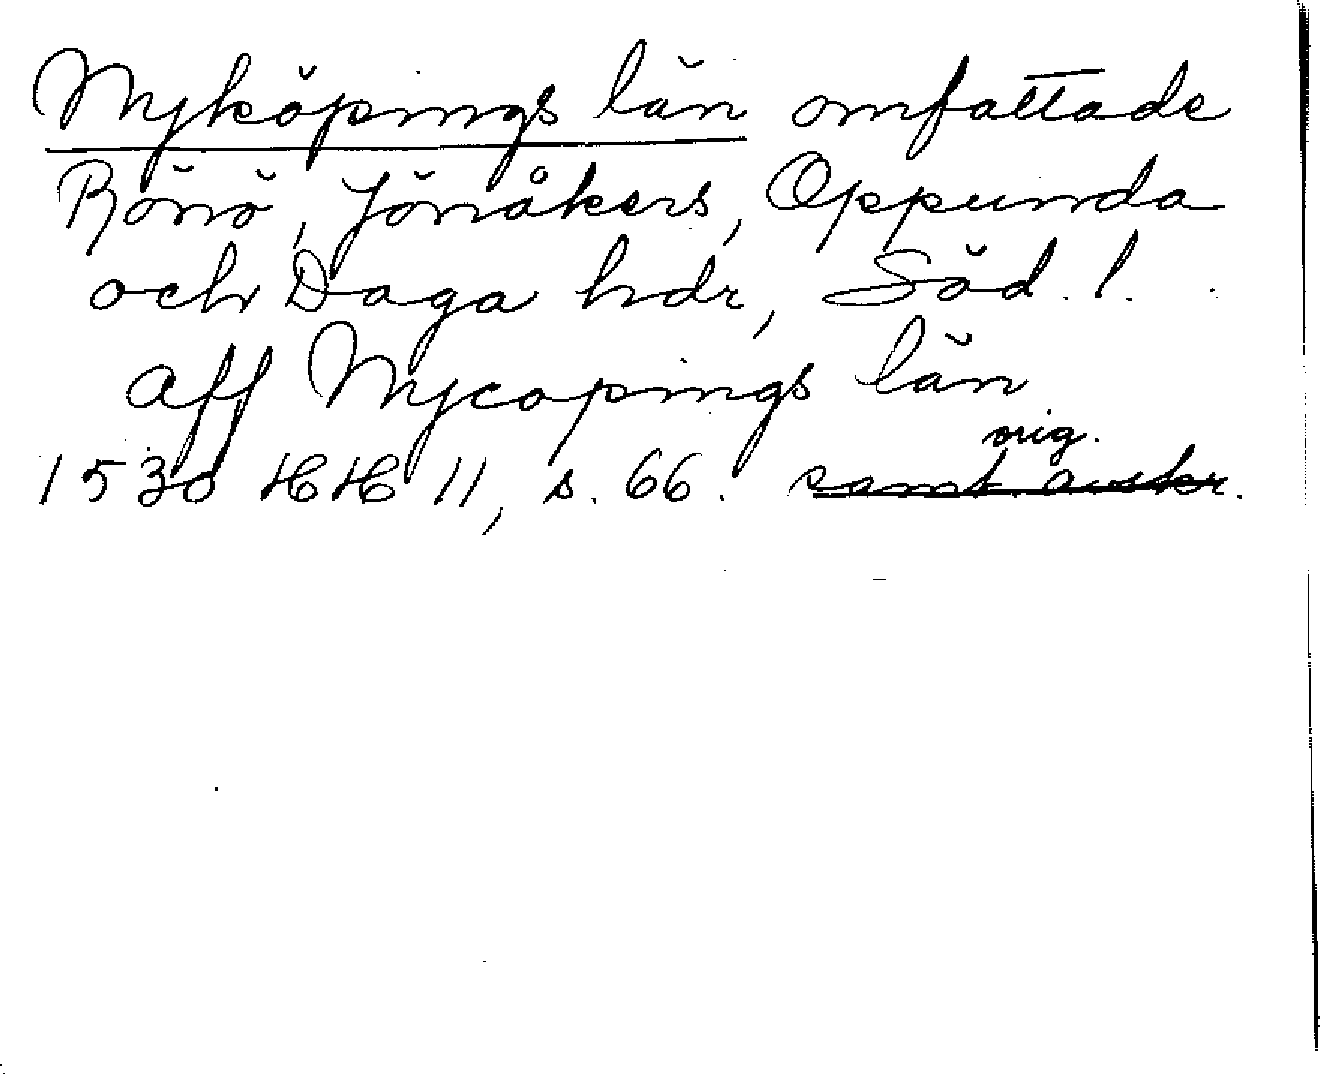 Nyköpings län omfattade
Rönö, Jönåkers, Oppunda
och Daga hdr, Söd. l.
aff Nycopings län
orig.
1530 HH 11, s. 66. samt. avskr.